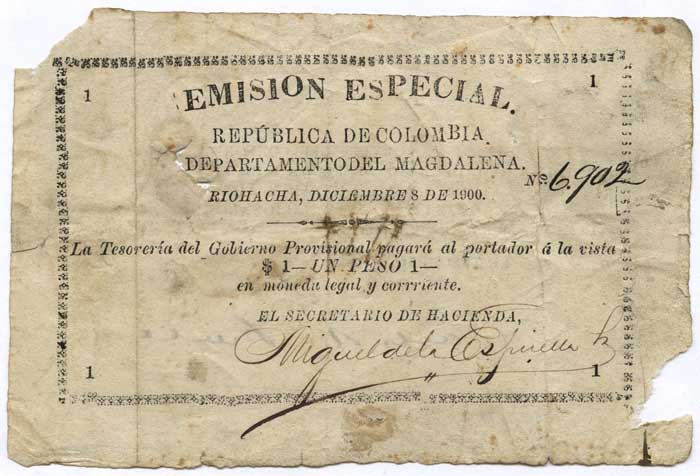 1 1
EMISION ESPECIAL.
REPÚBLICA DE COLOMBIA
DEPARTAMENTO DEL MAGDALENA.
Nº. 6.902
RIOHACHA, DICIEMBRE 8 DE 1900.
La Tesorería del Gobierno Provisional pagará al portador á la vista
$ 1— UN PESO 1—
en moneda legal y corrriente.
EL SECRETARIO DE HACIENDA,
Miguel de la Espriella
1 1